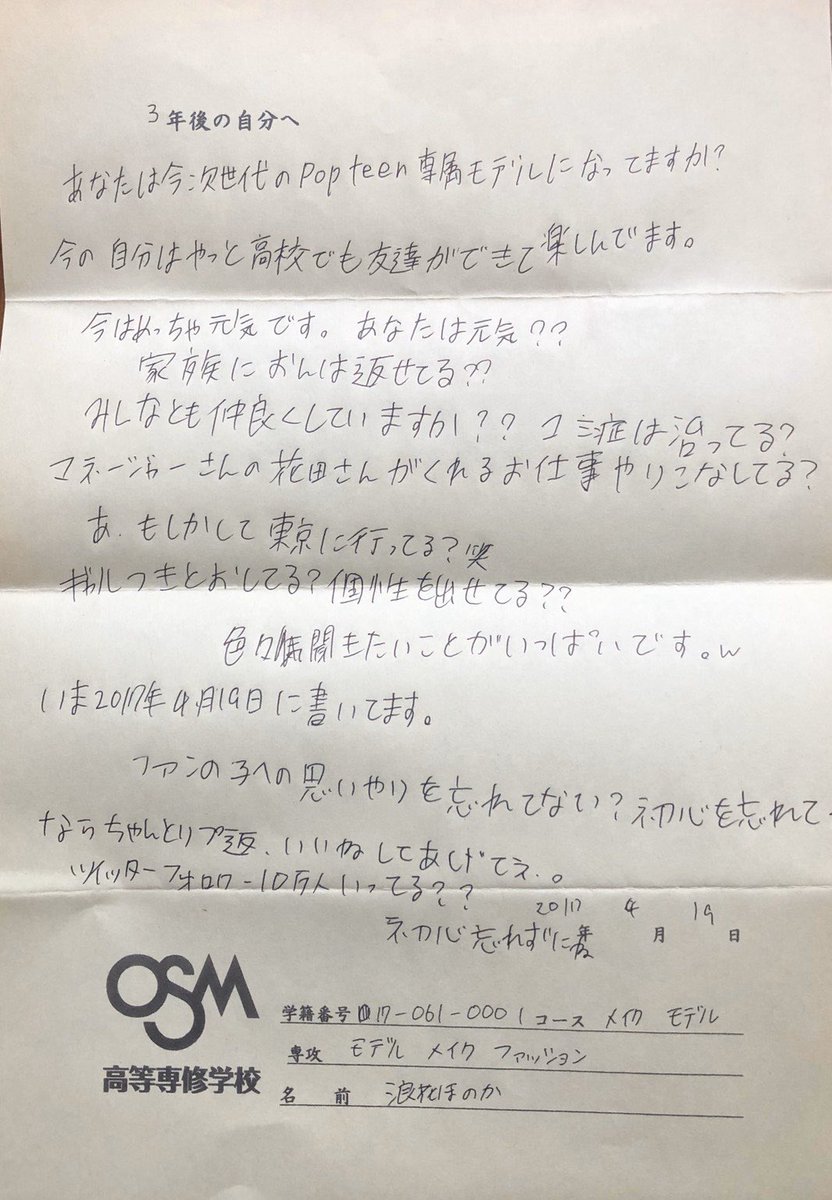 3年後の自分へ
あなたは今次世代のPopteen専属モデルになってますか?
今の自分はやっと高校でも友達ができて楽しんでます。
今はめっちゃ元気です。あなたは元気??
家族におんは返せてる??
みんなとも仲良くしていますか?? コミ症は治ってる?
マネージャーさんの花田さんがくれるお仕事やりこなしてる?
あ、もしかして東京に行ってる?笑
ギャルつきとおしてる?個性を出せてる??
色々聞きたいことがいっぱいです。w
いま2017年4月19日に書いてます。
ファンの子への思いやりを忘れてない?初心を忘れて
ならちゃんとリプ返、いいねしてあげてえ、。
ツイッターフォロワー10万人いってる??
2017年4月19日
初心忘れずにね
OSM
高等専修学校
学籍番号 17-061-0001 コース メイク モデル
専攻 モデル メイク ファッション
名前 浪花ほのか